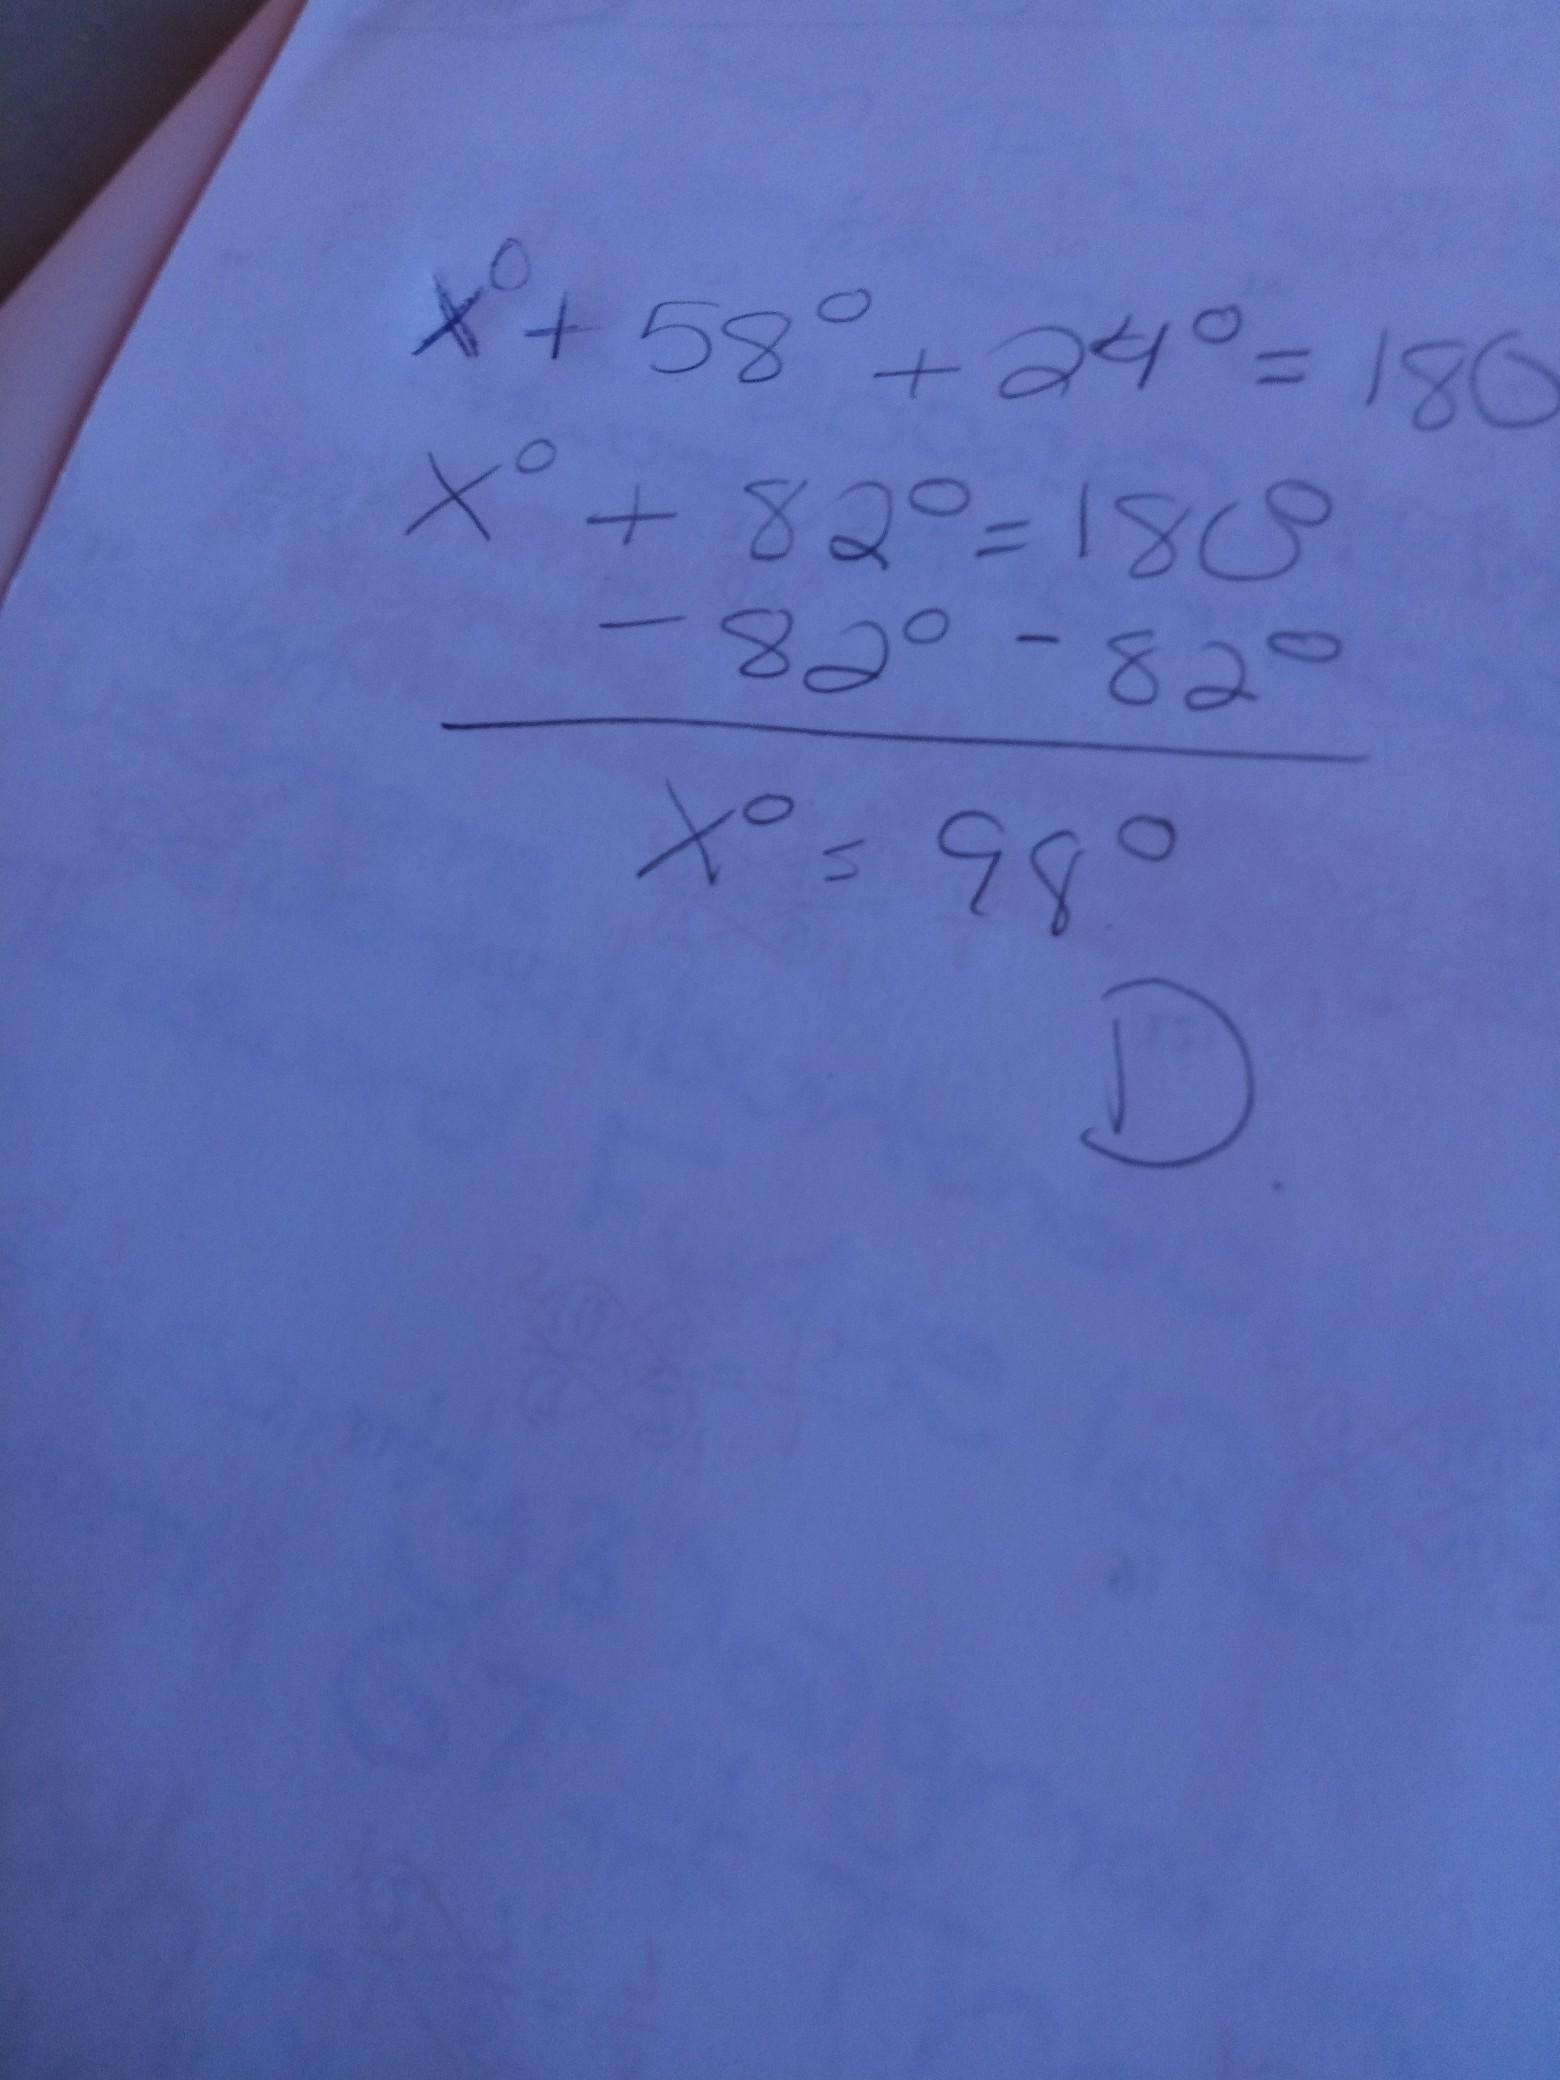 x° + 58° + 24° = 180
x° + 82° = 180°
- 82° - 82°
x° = 98°
D.